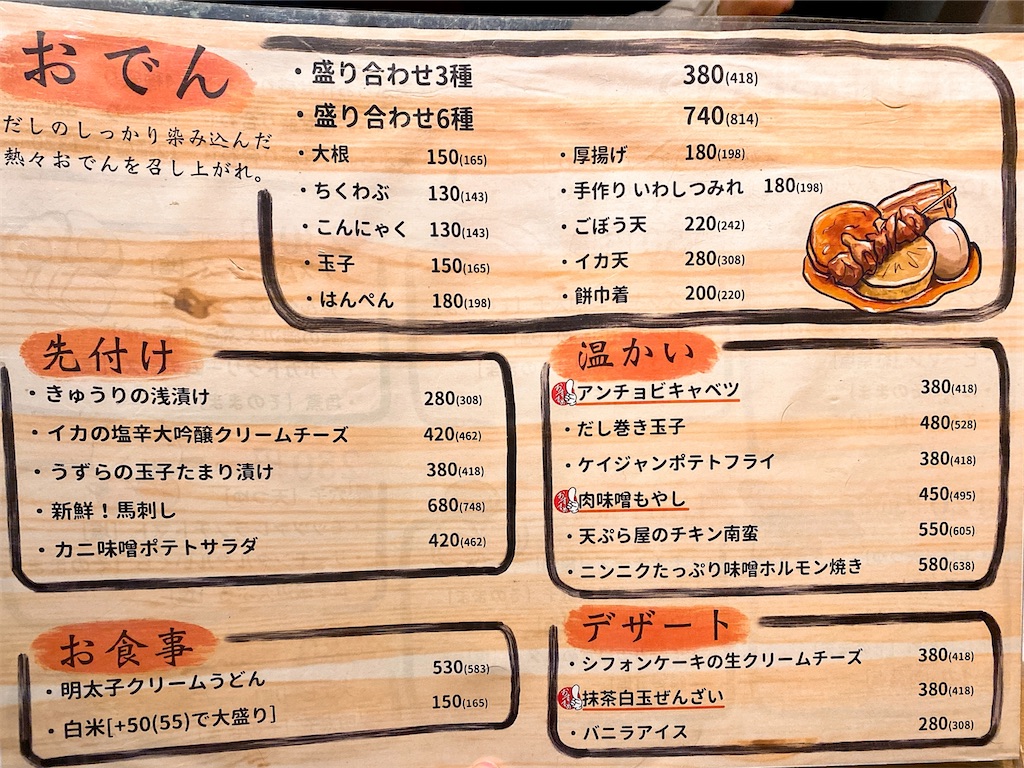 おでん
だしのしっかり染み込んだ
熱々おでんを召し上がれ。
・盛り合わせ3種 380(418)
・盛り合わせ6種 740(814)
・大根 150(165)
・ちくわぶ 130(143)
・こんにゃく 130(143)
・玉子 150(165)
・はんぺん 180(198)
・厚揚げ 180(198)
・手作り いわしつみれ 180(198)
・ごぼう天 220(242)
・イカ天 280(308)
・餅巾着 200(220)
先付け
・きゅうりの浅漬け 280(308)
・イカの塩辛大吟醸クリームチーズ 420(462)
・うずらの玉子たまり漬け 380(418)
・新鮮！馬刺し 680(748)
・カニ味噌ポテトサラダ 420(462)
温かい
アンチョビキャベツ 380(418)
・だし巻き玉子 480(528)
・ケイジャンポテトフライ 380(418)
肉味噌もやし 450(495)
・天ぷら屋のチキン南蛮 550(605)
・ニンニクたっぷり味噌ホルモン焼き 580(638)
お食事
・明太子クリームうどん 530(583)
・白米[+50(55)で大盛り] 150(165)
デザート
・シフォンケーキの生クリームチーズ 380(418)
抹茶白玉ぜんざい 380(418)
・バニラアイス 280(308)